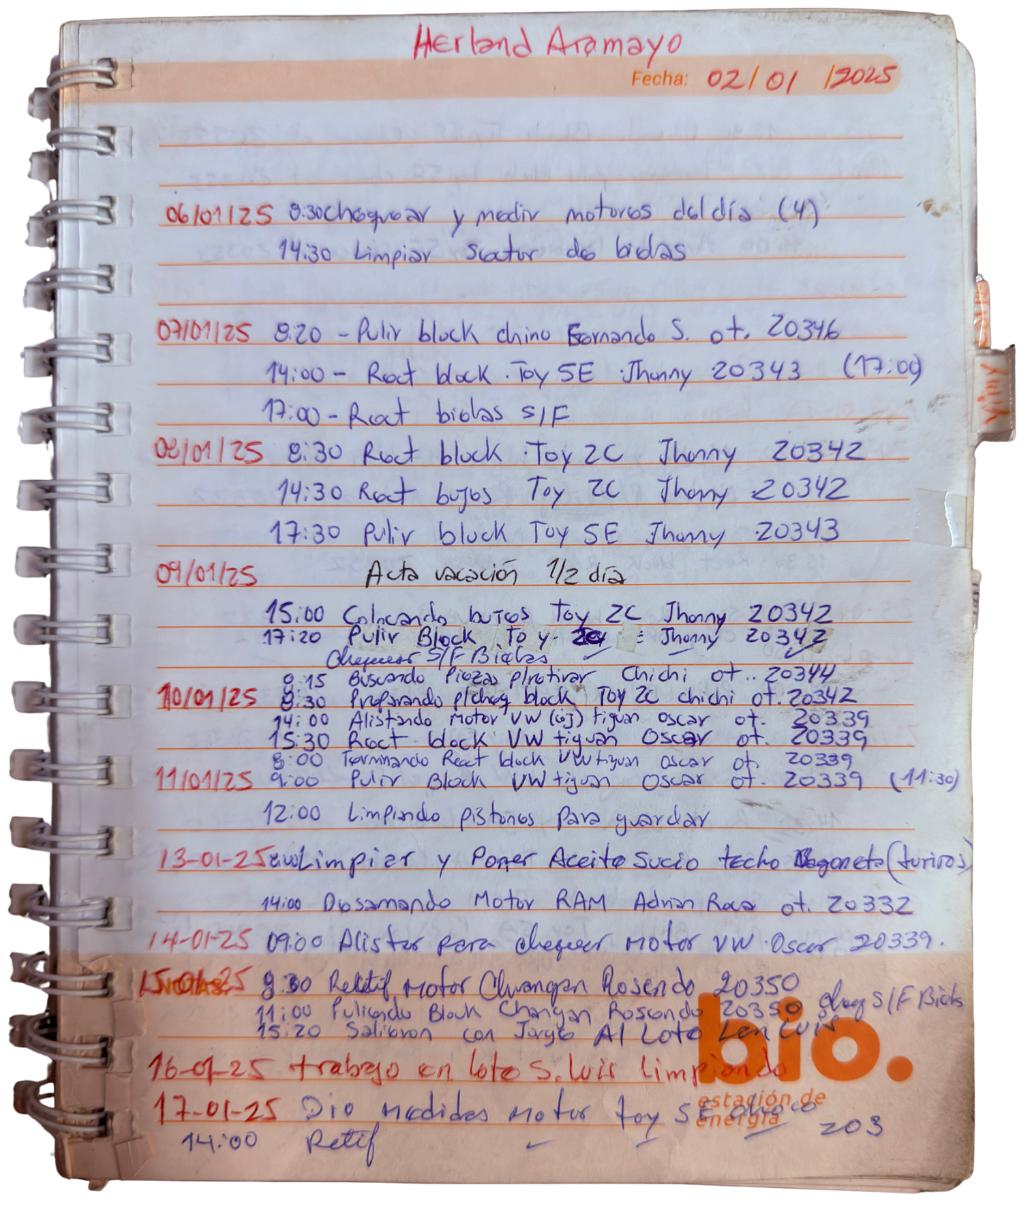 Herland Aramayo
Fecha: 02/01/2025
06/01/25 8:30 chequear y medir motores del día (4)
14:30 Limpiar sector de bielas
07/01/25 8:20 - Pulir block chino Fernando S. ot. 20346
14:00 - Rect block Toy 5E Jhonny 20343 (17:00)
17:00 - Rect bielas S/F
08/01/25 8:30 Rect block Toy 2C Jhonny 20342
14:30 Rect bujes Toy 2C Jhonny 20342
17:30 Pulir block Toy 5E Jhonny 20343
09/01/25 Acta vacación 1/2 día
15:00 Colocando bujes Toy 2C Jhonny 20342
17:20 Pulir Block Toy 2C Jhonny 20342
Chequear S/F Bielas
8:15 Buscando Piezas p/retirar Chichi ot. 20344
10/01/25 8:30 Preparando p/cheq block Toy 2C chichi ot. 20342
14:00 Alistando Motor VW tiguan oscar ot. 20339
15:30 Rect block VW tiguan Oscar ot. 20339
8:00 Terminando Rect block VW tiguan oscar ot. 20339
11/01/25 9:00 Pulir Block VW tiguan Oscar ot. 20339 (11:30)
12:00 Limpiando pistones para guardar
13-01-25 Limpiar y Poner Aceite Sucio techo Vagoneta
14:00 Desarmando Motor RAM Adrian Roca ot. 20332
14-01-25 09:00 Alistar para chequear motor VW Oscar 20339.
15-01-25 8:30 Retif motor Changan Rosendo 20350
11:00 Puliendo Block Changan Rosendo 20350 cheq S/F Biels
15:20 Salieron con Jorge Al Lote
16-01-25 trabajo en lote S. Luis limpiando
17-01-25 Dio medidas motor toy 5E 203
14:00 Retif
bio.
estación de
energía
yimy